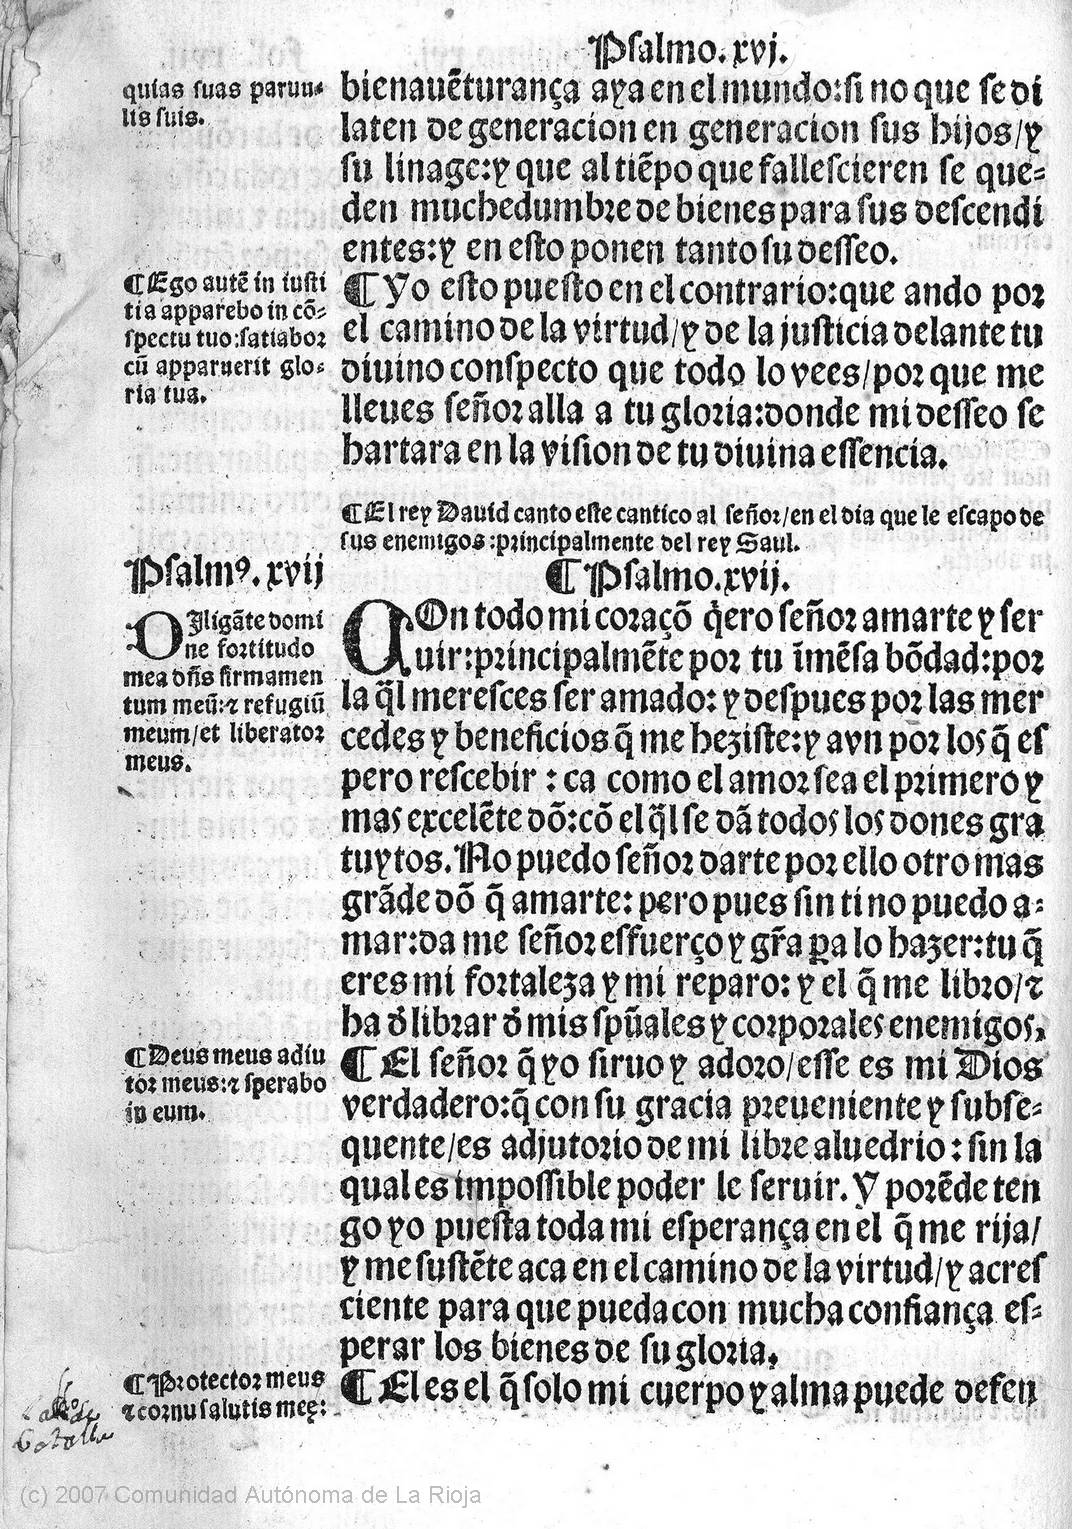 Psalmo. xvj.
quias suas paruu-
lis suis.
bienauẽturança aya en el mundo: si no que se di
laten de generacion en generacion sus hijos/y
su linage: y que al tiẽpo que fallescieren se que-
den muchedumbre de bienes para sus descendi
entes: y en esto ponen tanto su desseo.
¶ Ego autẽ in iusti
tia apparebo in cõ-
spectu tuo: satiabor
cũ apparuerit glo-
ria tua.
¶ Yo esto puesto en el contrario: que ando por
el camino de la virtud/y de la justicia delante tu
diuino conspecto que todo lo vees/por que me
lleues señor alla a tu gloria: donde mi desseo se
hartara en la vision de tu diuina essencia.
¶ El rey Dauid canto este cantico al señor/en el dia que le escapo de
sus enemigos: principalmente del rey Saul.
Psalmꝰ. xvij
¶ Psalmo. xvij.
DIligãte domi
ne fortitudo
mea dñs firmamen
tum meũ: ⁊ refugiũ
meum/et liberator
meus.
COn todo mi coraçõ q̇ero señor amarte y ser
uir: principalmẽte por tu ĩmẽsa bõdad: por
la q̃l meresces ser amado: y despues por las mer
cedes y beneficios q̃ me heziste: y avn por los q̃ es
pero rescebir: ca como el amor sea el primero y
mas excelẽte dõ: cõ el q̃l se dã todos los dones gra
tuytos. No puedo señor darte por ello otro mas
grãde dõ q̃ amarte: pero pues sin ti no puedo a-
mar: da me señor esfuerço y gr̃a ꝑa lo hazer: tu q̃
eres mi fortaleza y mi reparo: y el q̃ me libro/⁊
ha d̃ librar d̃ mis spũales y corporales enemigos.
¶ Deus meus adiu
tor meus: ⁊ sperabo
in eum.
¶ El señor q̃ yo siruo y adoro/esse es mi Dios
verdadero: q̃ con su gracia preueniente y subse-
quente/es adjutorio de mi libre aluedrio: sin la
qual es impossible poder le seruir. Y porẽde ten
go yo puesta toda mi esperança en el q̃ me rija/
y me sustẽte aca en el camino de la virtud/y acres
ciente para que pueda con mucha confiança es-
perar los bienes de su gloria.
¶ Protector meus
⁊ cornu salutis meę:
¶ El es el q̃ solo mi cuerpo y alma puede defen
(c) 2007 Comunidad Autónoma de La Rioja